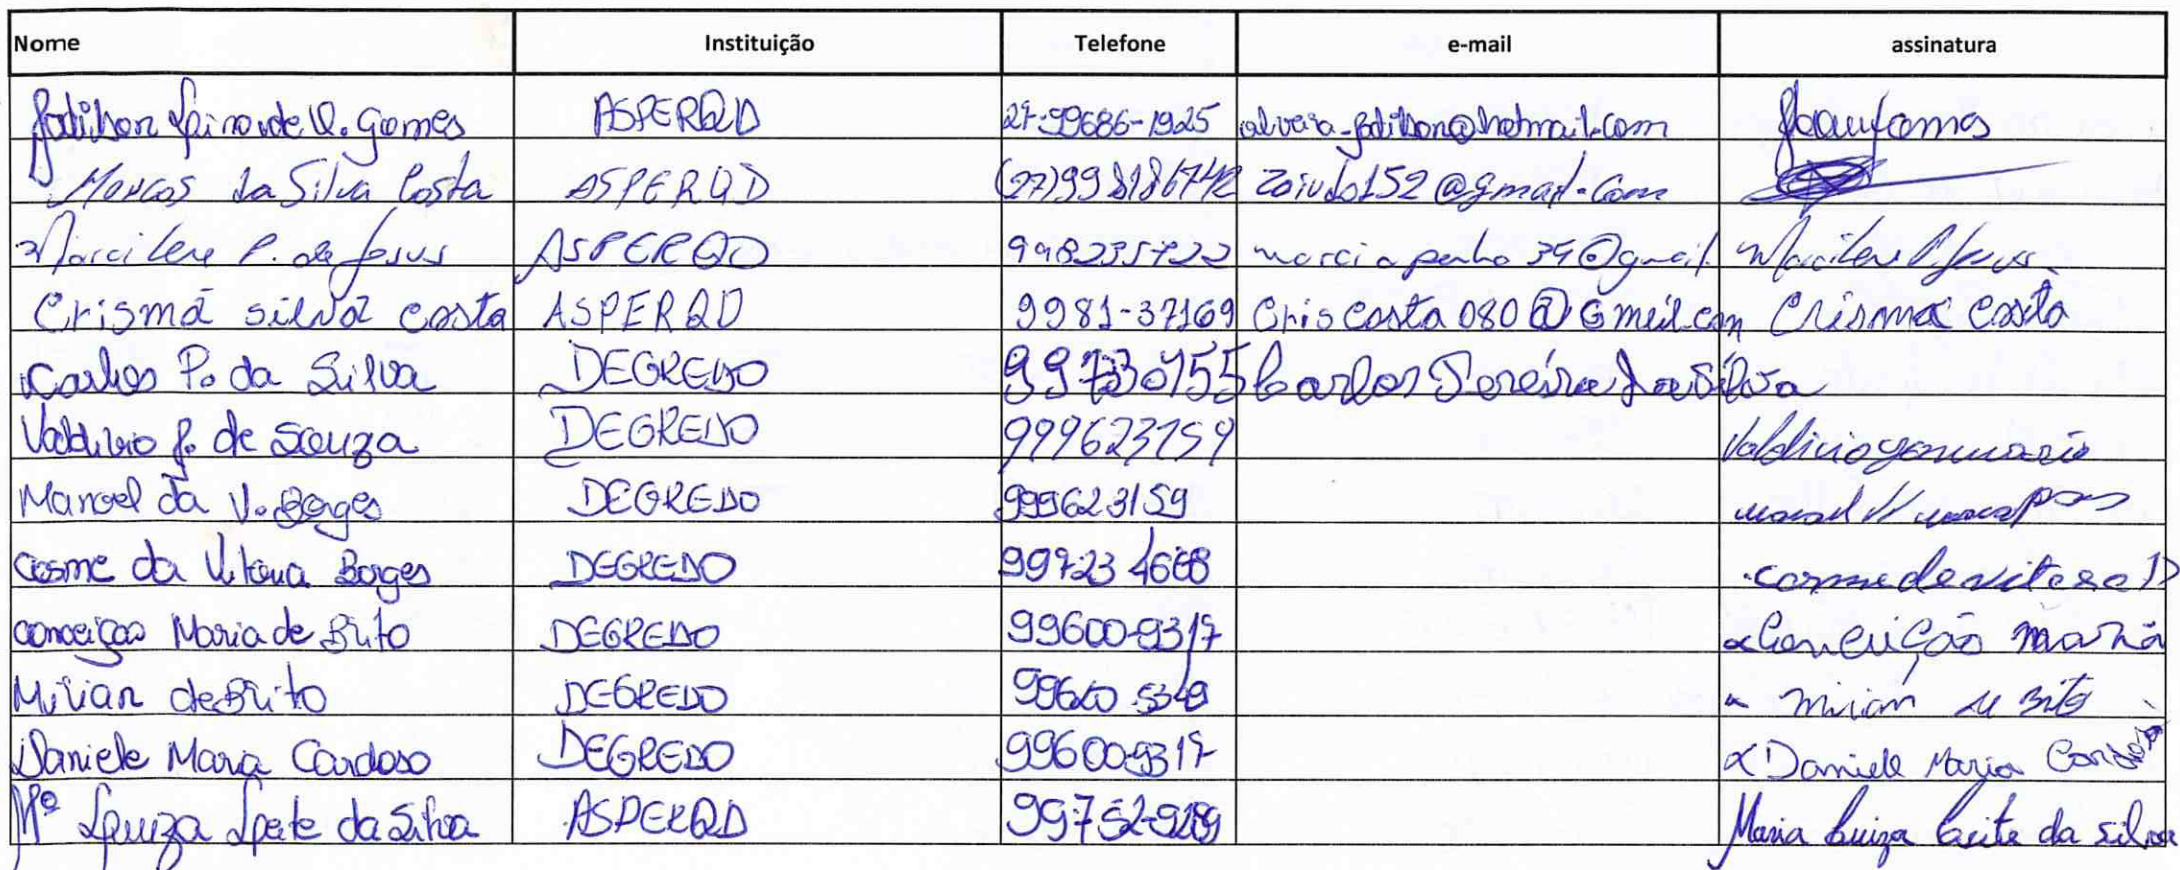 Nome Instituição Telefone e-mail assinatura
de O. Gomes ASPERQD 27-99686-1925
Marcos da Silva Costa ASPERQD (27)998186742 zoiudo152@gmail.com
Marcilene P. de Jesus ASPERQD 998235722
Crisma silva costa ASPERQD 9981-37169 Criscosta080@Gmeil.com Crisma Costa
Carlos P. da Silva DEGREDO Carlos Pereira da Silva
J. de Souza DEGREDO 999623159
Manoel da V. Borges DEGREDO 999623159
cosme da Vitoria Borges DEGREDO 99723 4668
conceiçao Maria de Brito DEGREDO 99600-9317 Conceição maria
Mirian de Brito DEGREDO mirian de Brito
Daniele Maria Cardoso DEGREDO 99600-9317 Daniele Maria Cardoso
Mª Luiza Leite da Silva ASPERQD 99752-9289 Maria Luiza Leite da silva